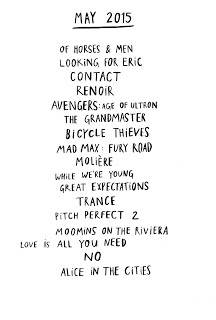 MAY 2015
OF HORSES & MEN
LOOKING FOR ERIC
CONTACT
RENOIR
AVENGERS: AGE OF ULTRON
THE GRANDMASTER
BICYCLE THIEVES
MAD MAX: FURY ROAD
MOLIÈRE
WHILE WE'RE YOUNG
GREAT EXPECTATIONS
TRANCE
PITCH PERFECT 2
MOOMINS ON THE RIVIERA
LOVE IS ALL YOU NEED
NO
ALICE IN THE CITIES